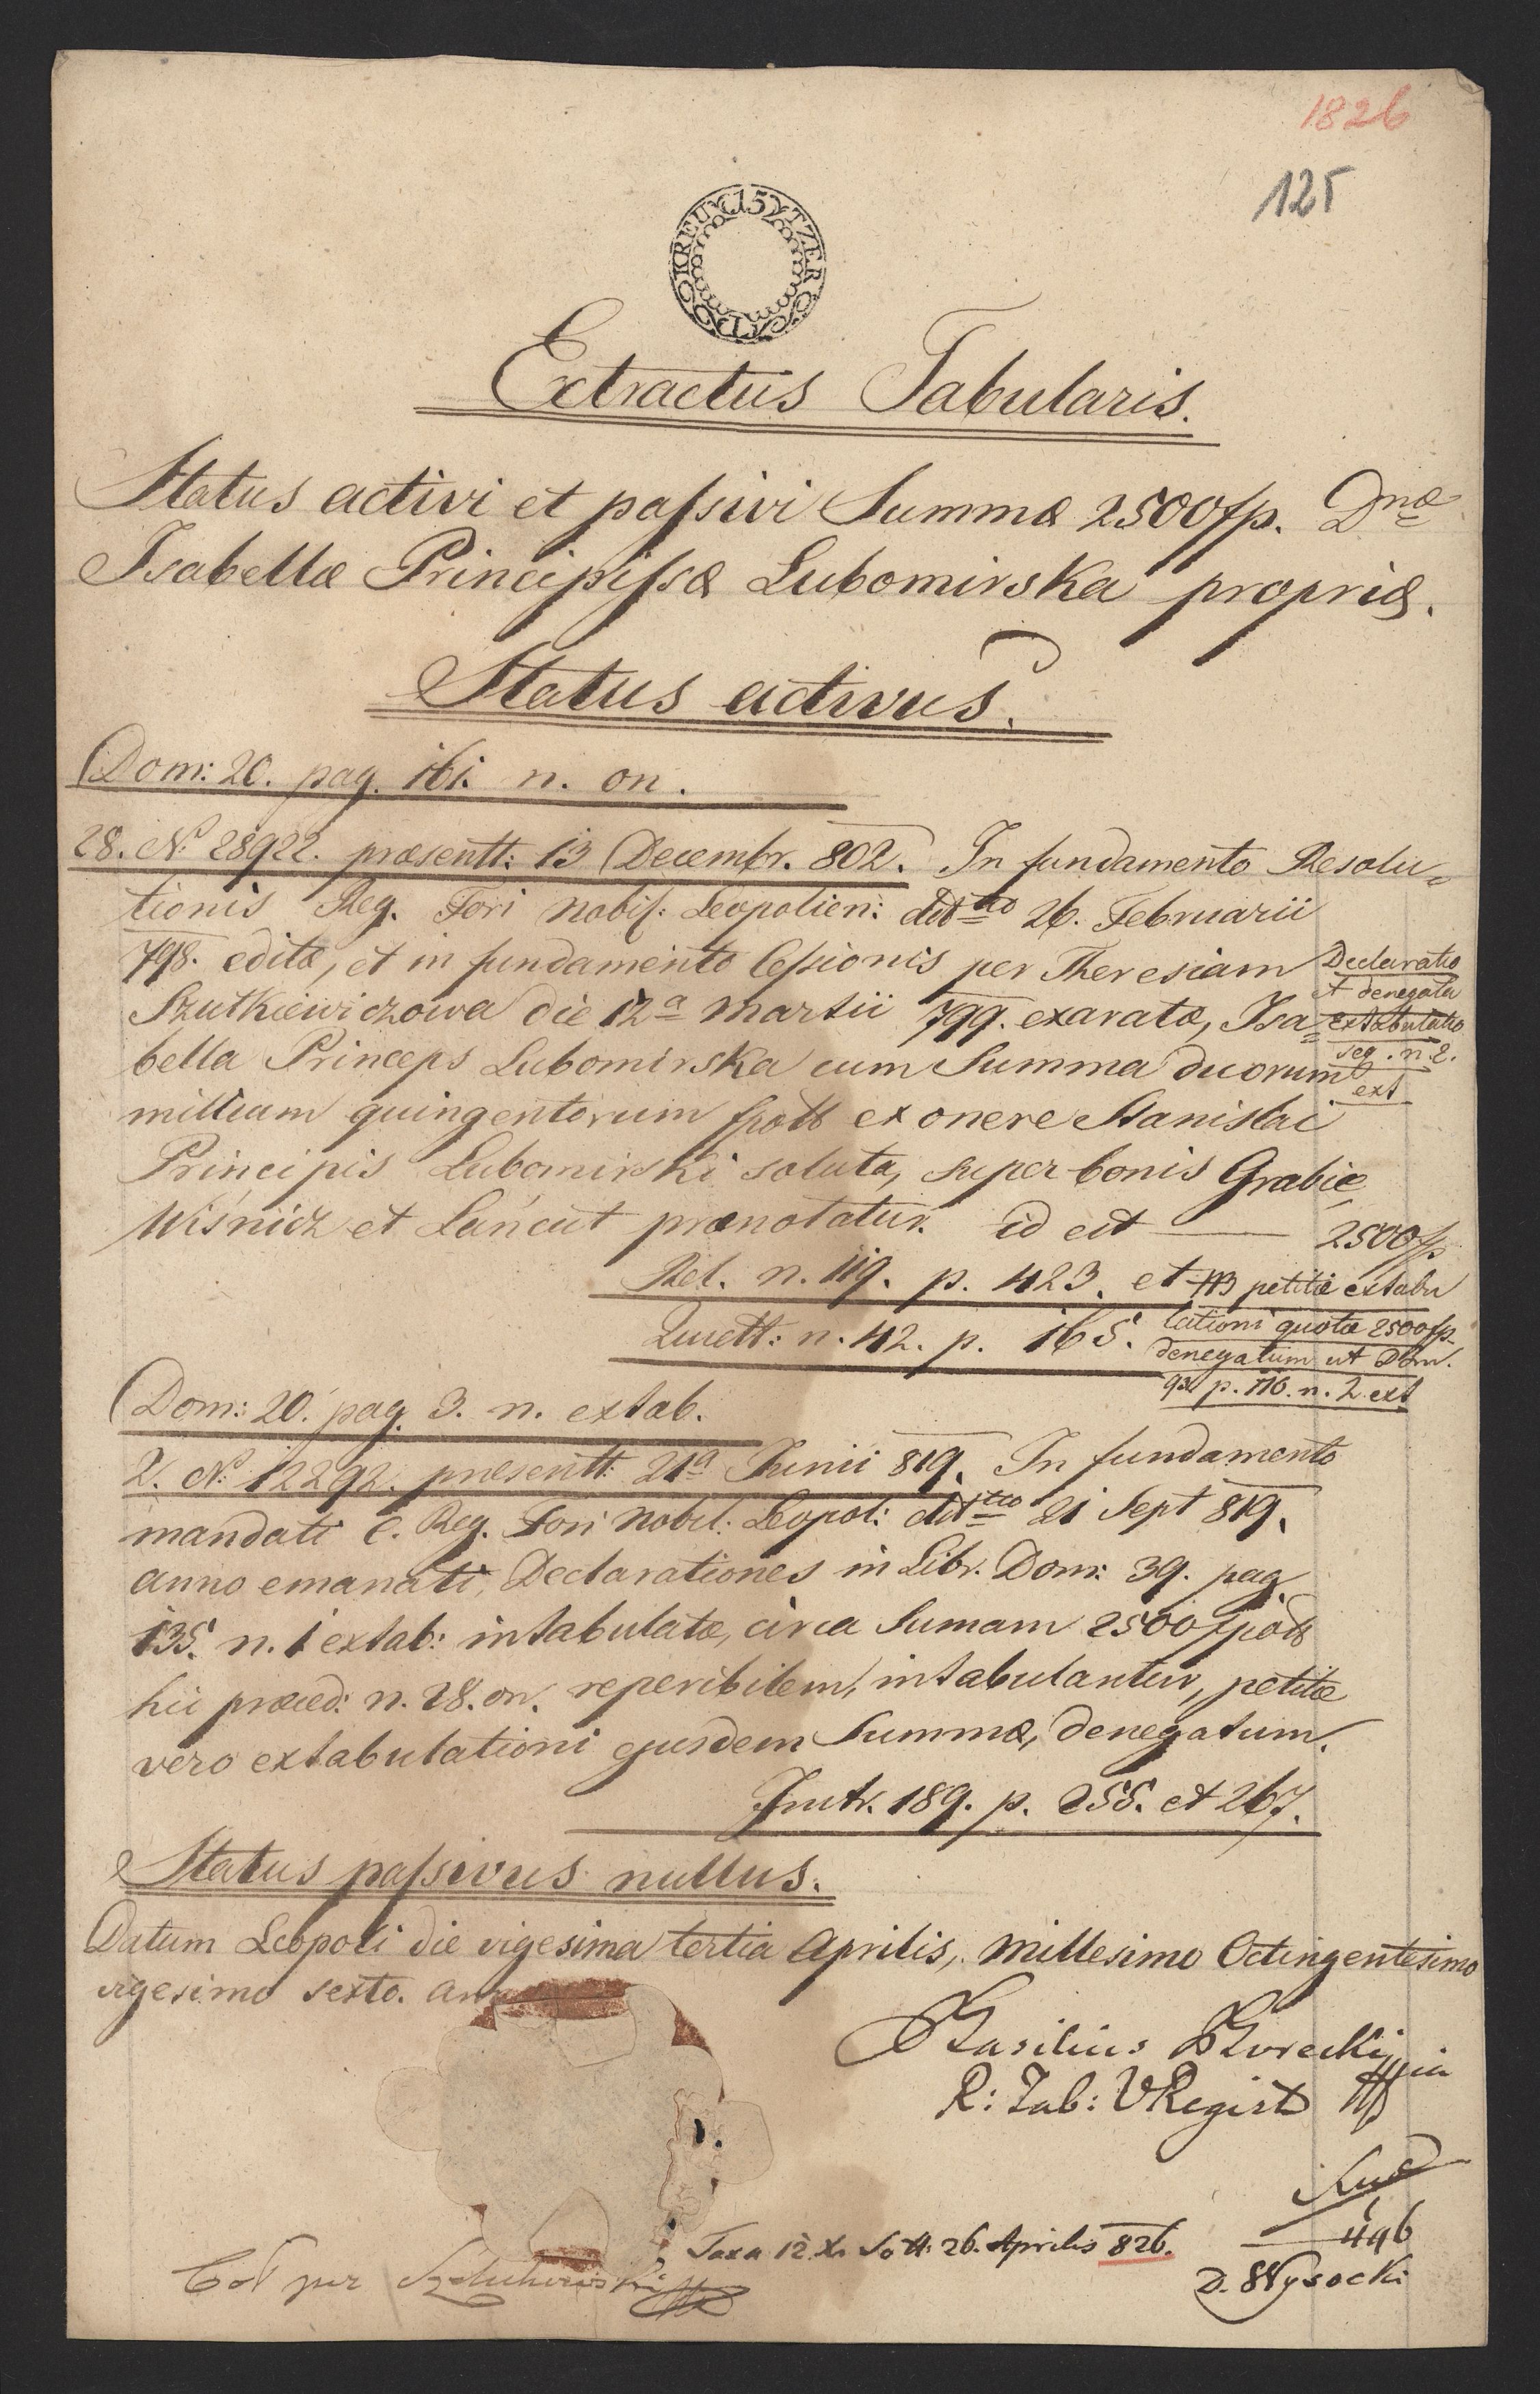 1826
125
15 KREUTZER C.M.
Extractus Tabularis.
Status activi et passivi Summæ 2500 fp. Dnæ
Isabellæ Principissæ Lubomirska propriæ.
Status activus.
Dom: 20. pag. 161. n. on.
28. N. 28922. præsentt: 13 Decembr. 802. In fundamento Resolu=
tionis Reg. Fori Nobil: Leopolien: ddtto 26. Februarii
798. editæ, et in fundamento Cessionis per Theresiam
Szutkiewiczowa die 12a Martii 799. exaratæ, Isa=
bella Princeps Lubomirska cum Summa duorum
millium quingentorum fpoll ex onere Stanislai
Principis Lubomirski soluta, super bonis Grabie,
Wiśnicz et Łańcut prænotatur. id est — 2500 fp
Declaratio
et denegata
extabulatio
seq. n. 2.
ext
Rel. n. 119. p. 423. et 113 petitæ extabu
Quett: n. 42. p. 165. lationi quotæ 2500 fp.
denegatum ut Dom.
p. 116. n. 2 ext
Dom: 20. pag. 3. n. extab.
2. N. 12292. præsentt: 21a Junii 819. In fundamento
mandati C. Reg. Fori Nobil: Leopol: ddtto 21 Sept 819.
anno emanati, Declarationes in Libr. Dom: 39. pag.
135. n. 1 extab: intabulatæ, circa Sumam 2500 fpoll
hic præced: n. 28. on. reperibilem, intabulantur, petitæ
vero extabulationi ejusdem Summæ, denegatum.
Instr. 189. p. 255. et 267.
Status passivus nullus.
Datum Leopoli die vigesima tertia Aprilis, Millesimo Octingentesimo
vigesimo sexto.
Basilius
R: Tab: VRegist
Taxa 12 X. Sott. 26. Aprilis 826.
496
Col per
D. Wysocki